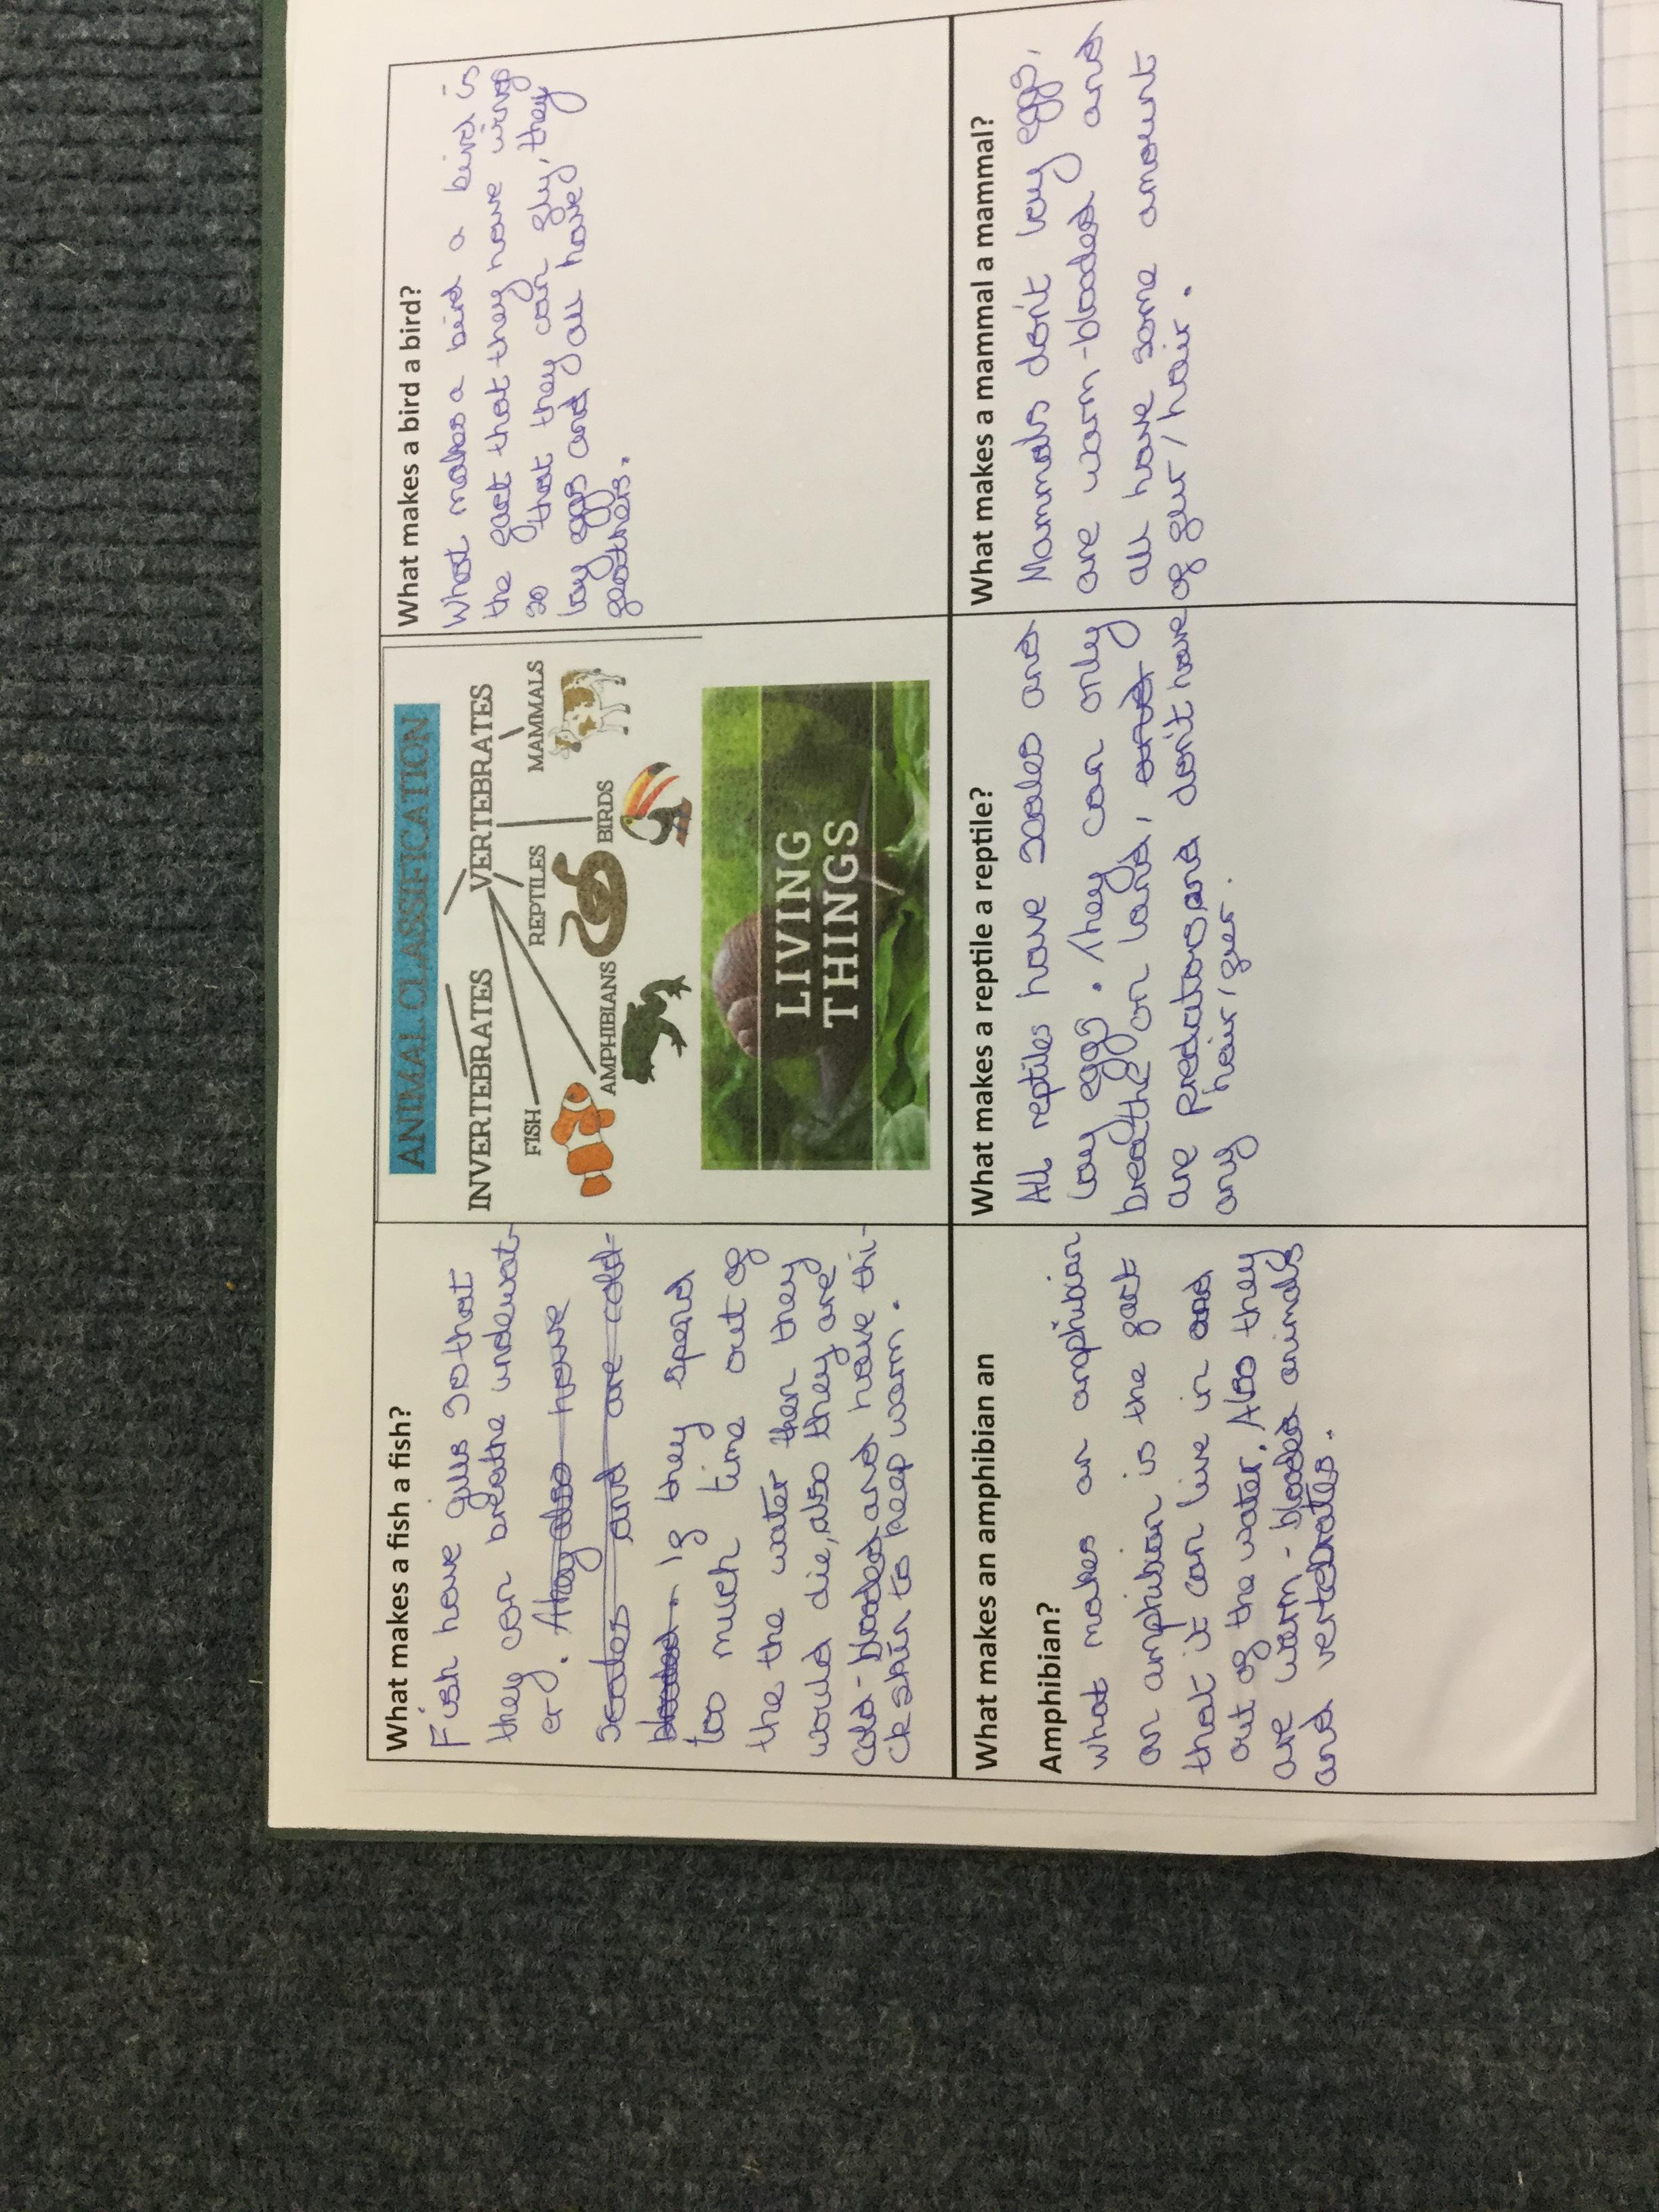 What makes a fish a fish?
Fish have gills so that
they can breathe underwat-
er. They also have
scales and are cold-
blooded. If they spend
too much time out of
the the water then they
would die, also they are
cold-blooded and have thi-
ck skin to keep warm.
ANIMAL CLASSIFICATION
INVERTEBRATES VERTEBRATES
FISH REPTILES MAMMALS
AMPHIBIANS BIRDS
LIVING
THINGS
What makes a bird a bird?
What makes a bird a bird is
the fact that they have wings
so that they can fly, they
lay eggs and all have
feathers.
What makes an amphibian an
Amphibian?
what makes an amphibian
an amphibian is the fact
that it can live in and
out of the water. Also they
are warm-blooded animals
and vertebrates.
What makes a reptile a reptile?
All reptiles have scales and
lay eggs. They can only
breathe on land, and
are predators and don't have
any hair/fur.
What makes a mammal a mammal?
Mammals don't lay eggs,
are warm-blooded and
all have some amount
of fur/hair.